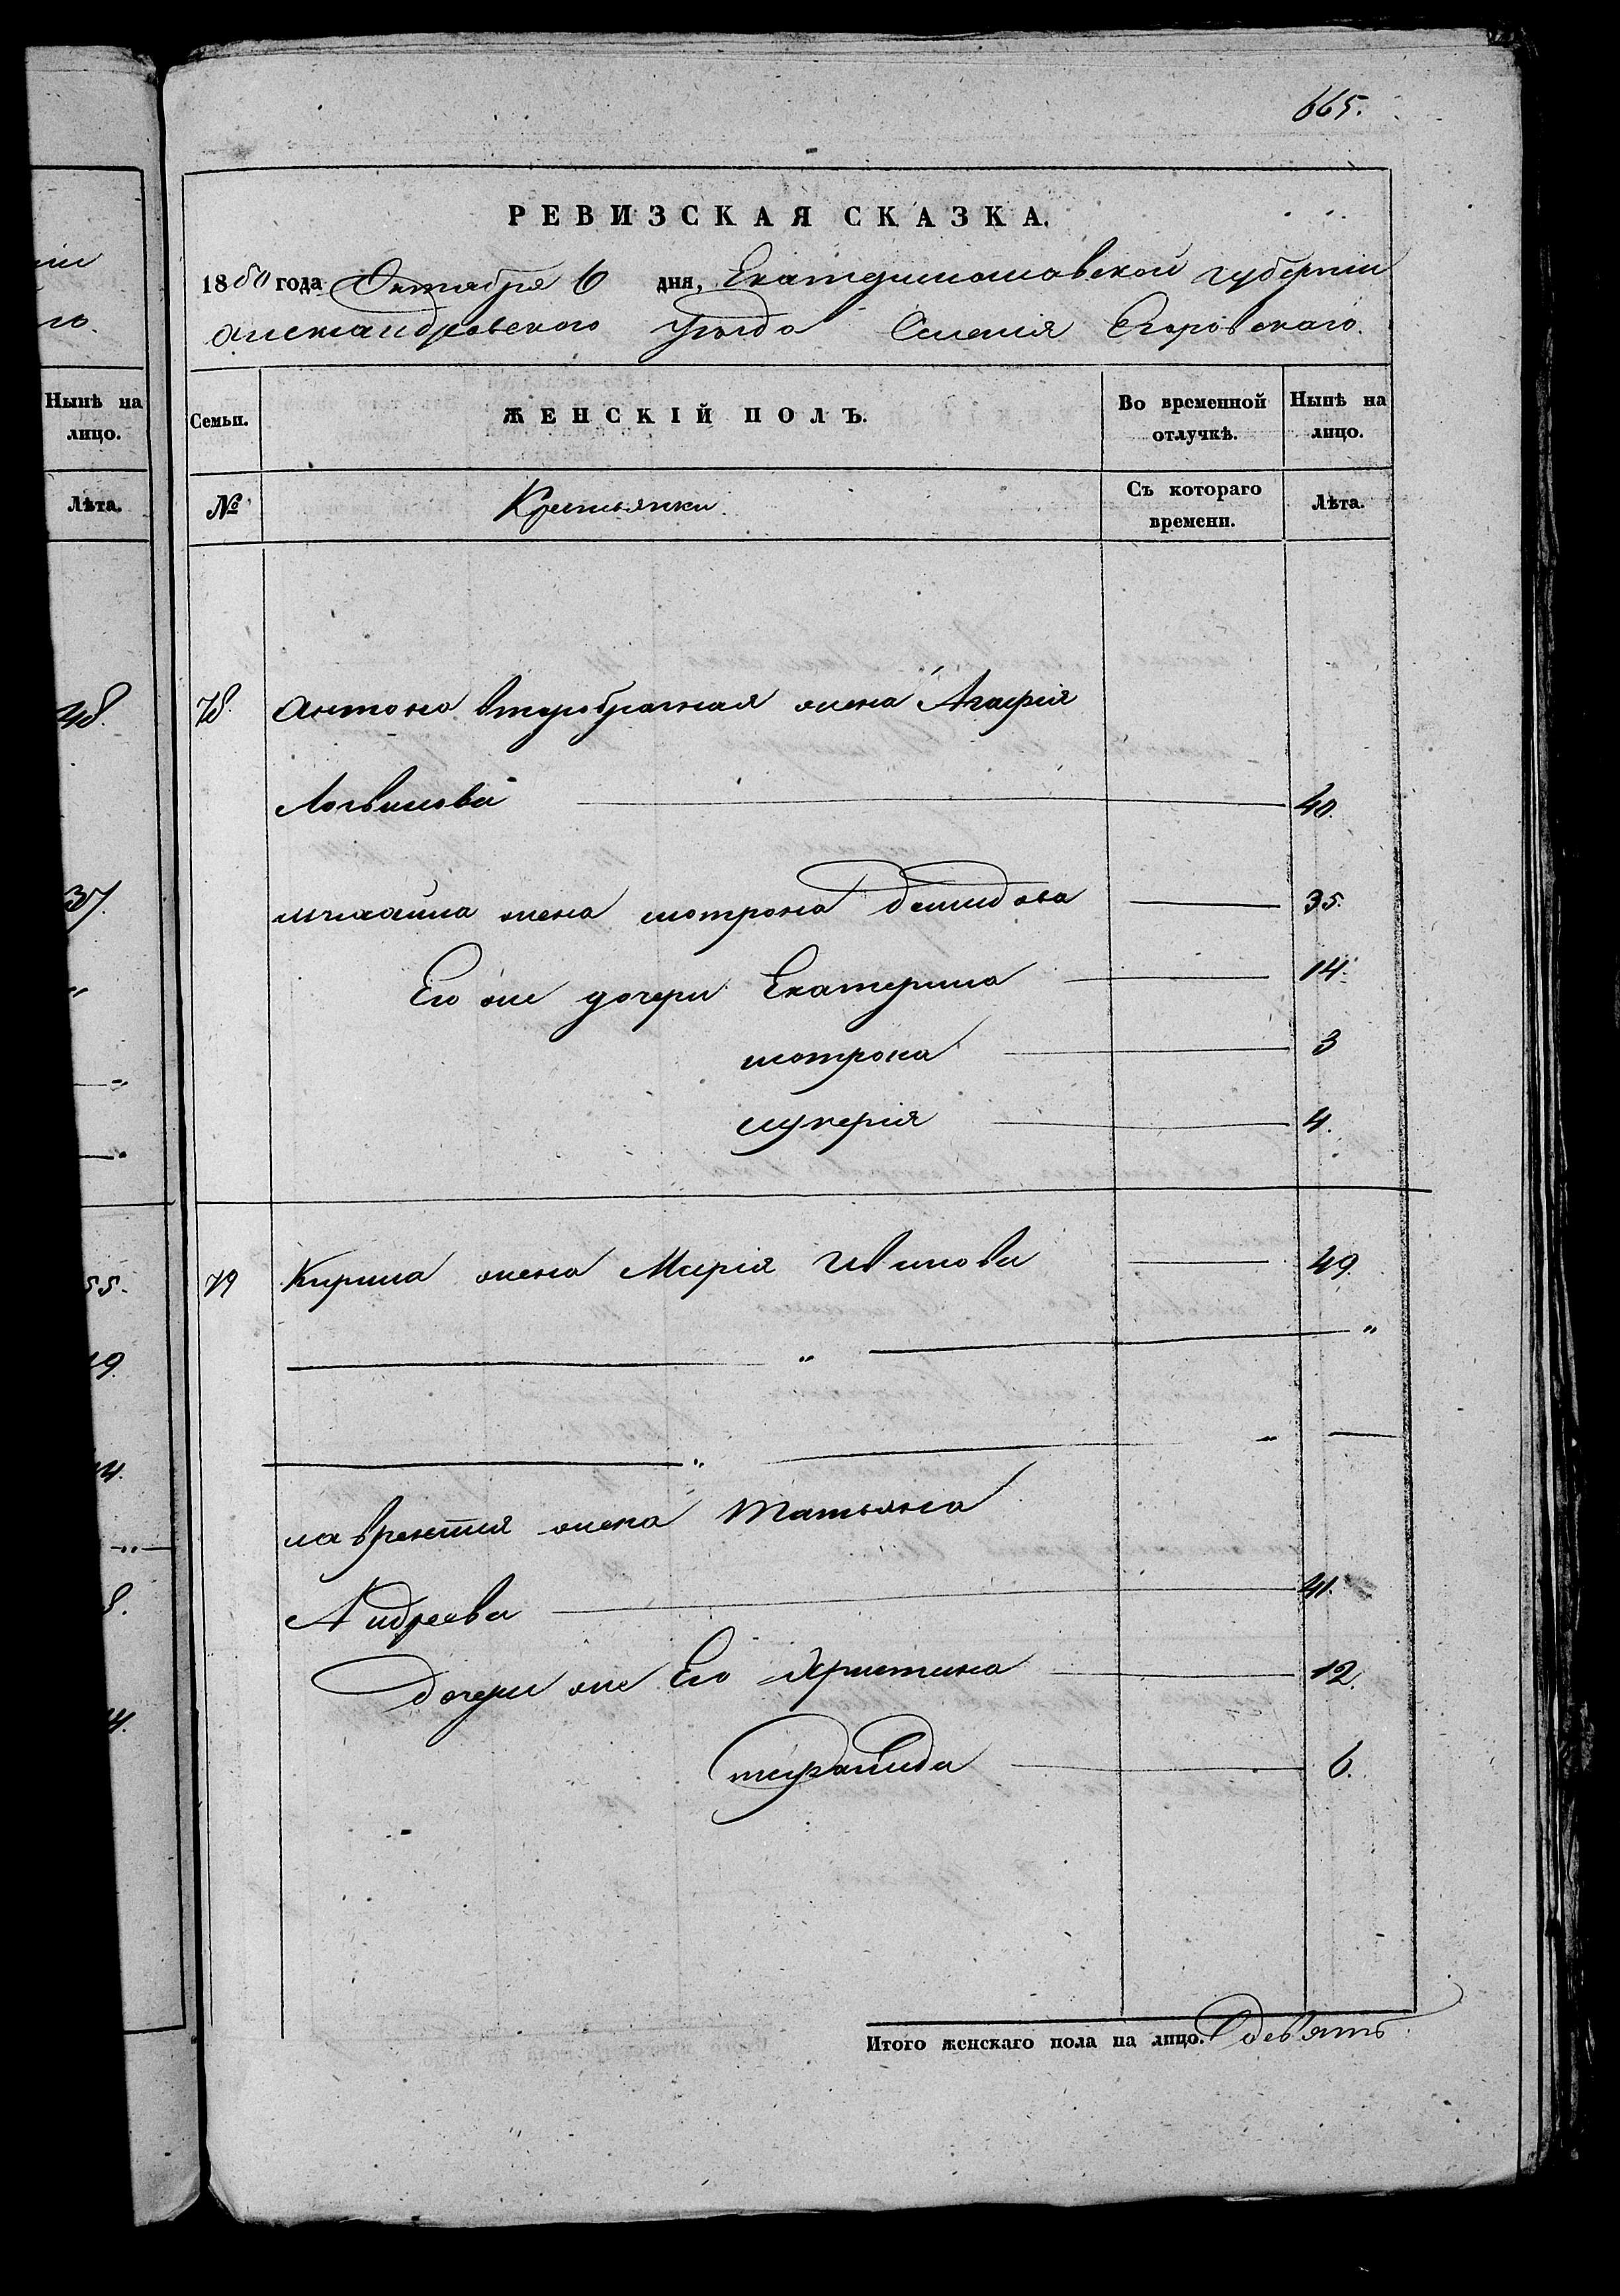 665.
РЕВИЗСКАЯ СКАЗКА.
1850 года Октября 6 дня, Екатеринославской губерніи
Александровского Уезда Селенія Егоровскаго.
Семьи. ЖЕНСКІЙ ПОЛЪ. Во временной отлучкѣ. Нынѣ на лицо.
№ Крестьянки. Съ котораго времени. Лѣта.
78. Антона второбрачная жена Агафія
Логвинова 40.
михайла жена мотрона Демидова 35.
Его же дочери Екатерина 14.
мотрона 3
лукерія 4.
79 Кирила жена Марія Ивановa 49.
"  "
"  "
лаврентия жена Татьяна
Андреева 41.
Дочери же Его Христина 12.
6.
Итого женскаго пола на лицо. Девять.
Нынѣ на лицо.
Лѣта.
48.
37.
"
"
55.
19.
14.